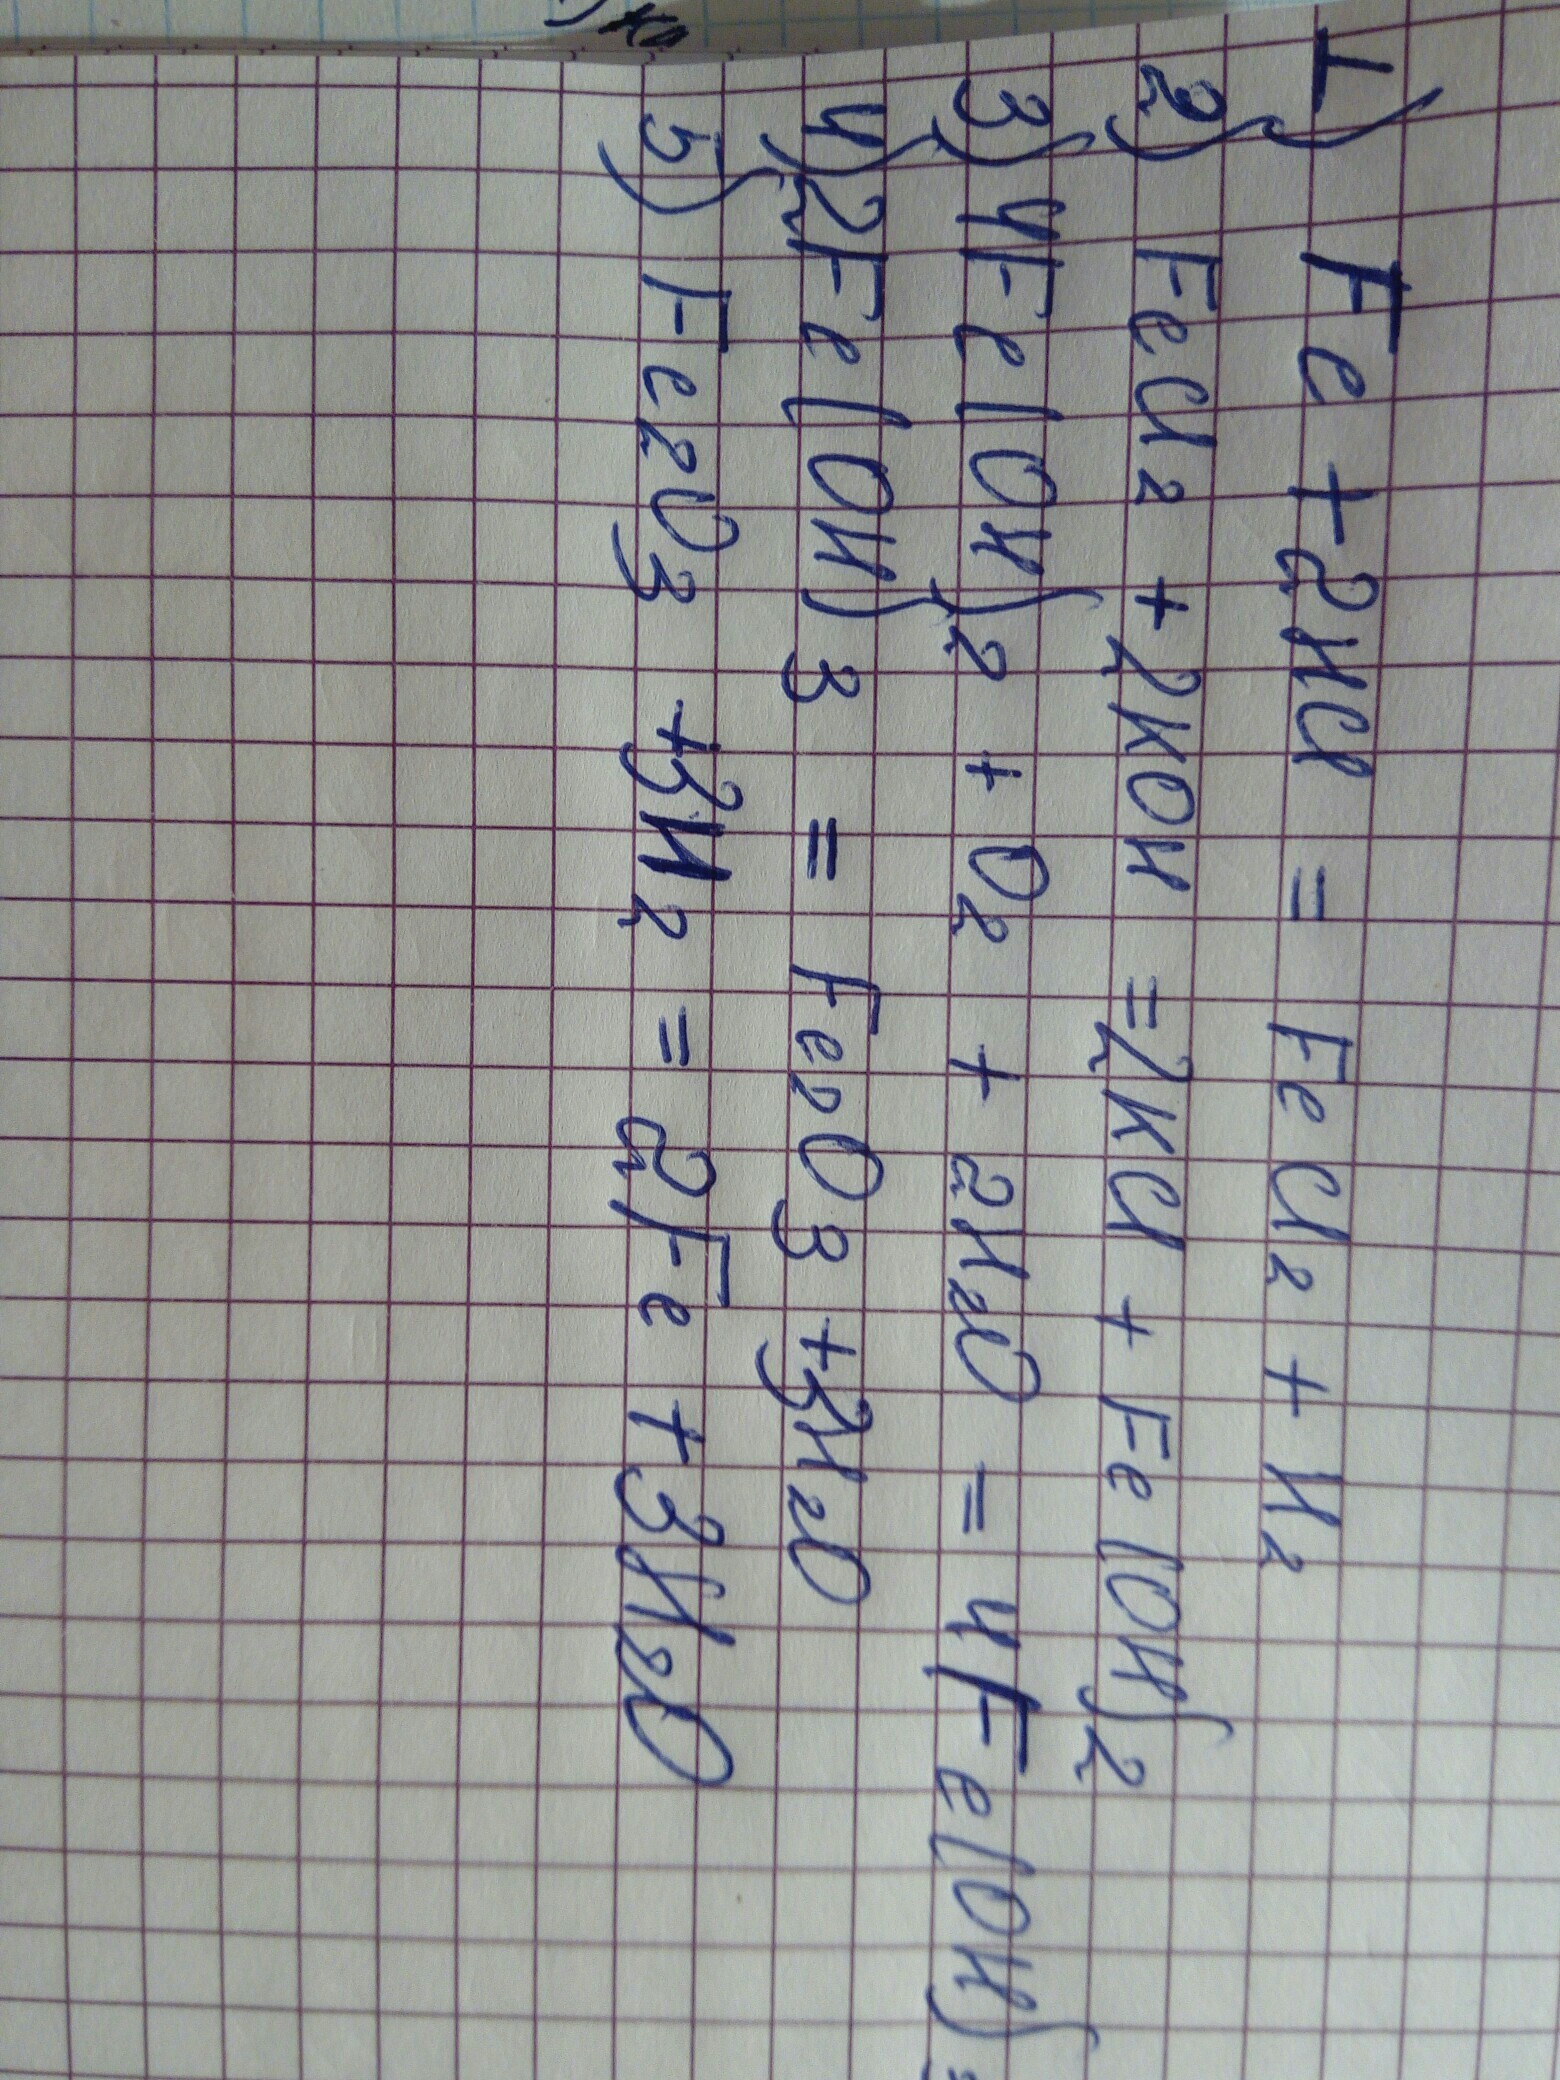 1) Fe + 2HCl = FeCl₂ + H₂
2) FeCl₂ + 2KOH = 2KCl + Fe(OH)₂
3) 4Fe(OH)₂ + O₂ + 2H₂O = 4Fe(OH)
4) 2Fe(OH)3 = Fe₂O3 + 3H₂O
5) Fe₂O3 + 3H₂ = 2Fe + 3H₂O